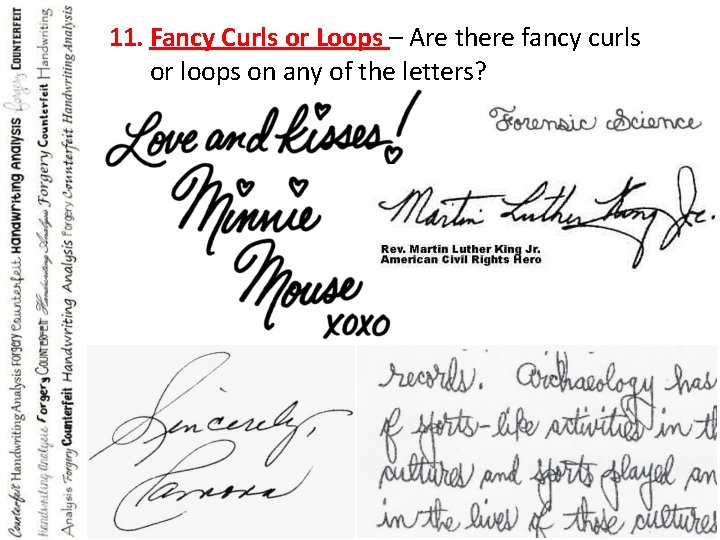 11. Fancy Curls or Loops – Are there fancy curls
or loops on any of the letters?
Love and Kisses!
Minnie
Mouse
xoxo
Forensic Science
Martin Luther King Jr.
Rev. Martin Luther King Jr.
American Civil Rights Hero
Sincerely,
Ramona
records. Archaeology has
of sports-like activities in th
cultures and sports played an
in the lives of those cultures
Counterfeit Handwriting Analysis Forgery Counterfeit Handwriting Analysis Forgery Counterfeit
Handwriting Analysis Forgery Counterfeit Handwriting Analysis Forgery Counterfeit Handwriting
Analysis Forgery Counterfeit Handwriting Analysis Forgery Counterfeit Handwriting Analysis